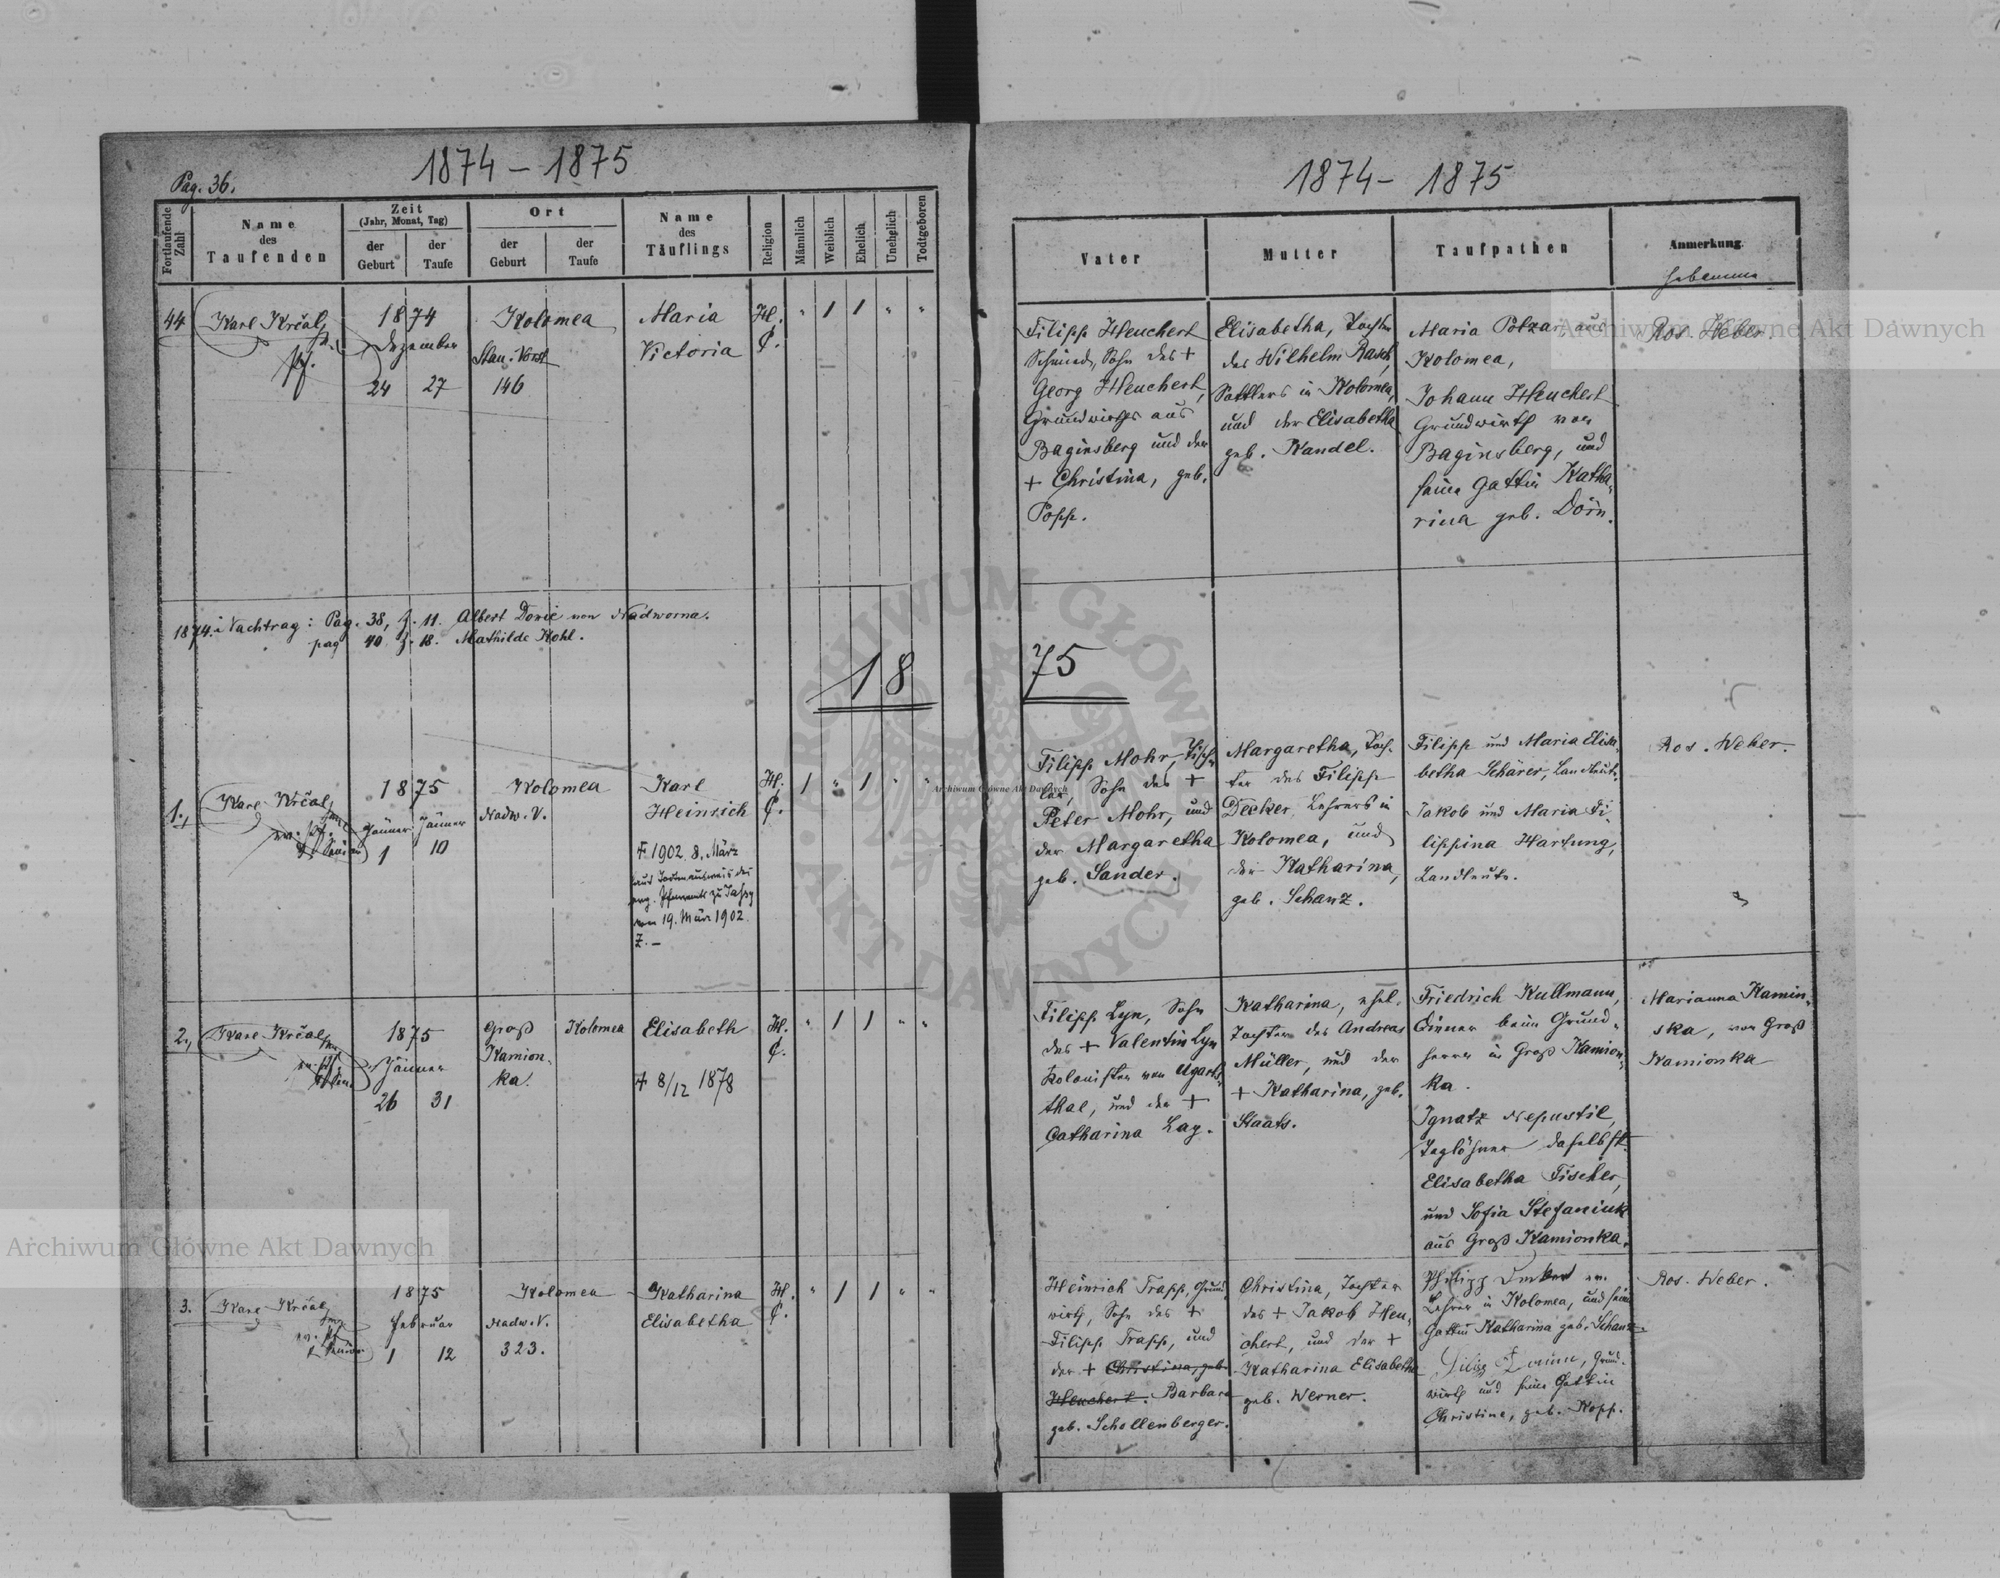 Pag. 36.
1874 – 1875
1874 – 1875
Fortlaufende Zahl
Name
des
Taufenden
Zeit
(Jahr, Monat, Tag)
der
Geburt
der
Taufe
Ort
der
Geburt
der
Taufe
Name
des
Täuflings
Religion
Männlich
Weiblich
Ehelich
Unehelich
Todtgeboren
Vater
Mutter
Taufpathen
Anmerkung
Hebamme
44
Karl Krčal
Pf.
1874
Dezember
24 27
Kolomea
Stan. Vorst
146
Maria
Victoria
H.
C.
" 1 1 " "
Filipp Heuchert
Schmied, Sohn des +
Georg Heuchert,
Grundwirths aus
Baginsberg und der
+ Christina, geb.
Popp.
Elisabetha, Tochter
des Wilhelm Rasch,
Sattlers in Kolomea,
und der Elisabetha
geb. Kandel.
Maria Polzar, aus
Kolomea,
Johann Heuchert
Grundwirth von
Baginsberg, und
seine Gattin Katha-
rina geb. Dörn.
Ros. Weber.
1874. Nachtrag: Pag. 38, z. 11. Albert Doric von Nadworna.
pag 40 z. 18. Mathilde Kohl.
18 75
1.,
Karl Krčal
sen.
ev. Pf.
Senior
1875
Jänner Jänner
1 10
Kolomea
Nadw. V.
Karl
Heinrich
+ 1902 8. März
laut Todtenausweis des
evg. Pfarramts zu Jassy
vom 19. März 1902.
Z. –
H.
C.
1 " 1 " "
Filipp Mohr, Tisch-
ler, Sohn des +
Peter Mohr, und
der Margaretha
geb. Sander.
Margaretha, Toch-
ter des Filipp
Decker, Lehrers in
Kolomea, und
der Katharina,
geb. Schanz.
Filipp und Maria Elisa-
betha Schärer, Landleute.
Jakob und Maria Fi-
lippina Hartung,
Landleute.
Ros. Weber.
2.,
Karl Krčal
sen.
ev. Pf.
1875
Jänner
26 31
Groß
Kamion-
ka.
Kolomea
Elisabeth
+ 8/12 1878
H.
C.
" 1 1 " "
Filipp Lyn, Sohn
des + Valentin Lyn
Kolonisten von Ugarts-
thal, und der +
Catharina Lay.
Katharina, ehel.
Tochter des Andreas
Müller, und der
+ Katharina, geb.
Staats.
Friedrich Kullmann,
Diener beim Grund-
herrn in Groß Kamion-
ka.
Ignatz Nepustil,
Taglöhner daselbst.
Elisabetha Fischer,
und Sofia Stefaniuk
aus Groß Kamionka.
Marianna Kamin-
ska, von Groß
Kamionka
3.
Karl Krčal
sen.
ev. Pf.
Senior
1875
Februar
1 12
Kolomea
Nadw. V.
323.
Katharina
Elisabetha
H.
C.
" 1 1 " "
Heinrich Trapp, Grund-
wirth, Sohn des +
Filipp Trapp, und
der + Christina, geb.
Heuchert. Barbara
geb. Schollenberger.
Christina, Tochter
des + Jakob Heu-
chert, und der +
Katharina Elisabetha
geb. Werner.
Philipp Decker em.
Lehrer in Kolomea, und seine
Gattin Katharina geb. Schanz.
Grund-
wirth und seine Gattin
Christine, geb. Kopp.
Ros. Weber.
Archiwum Główne Akt Dawnych
Archiwum Główne Akt Dawnych
Archiwum Główne Akt Dawnych
ARCHIWUM GŁÓWNE AKT DAWNYCH